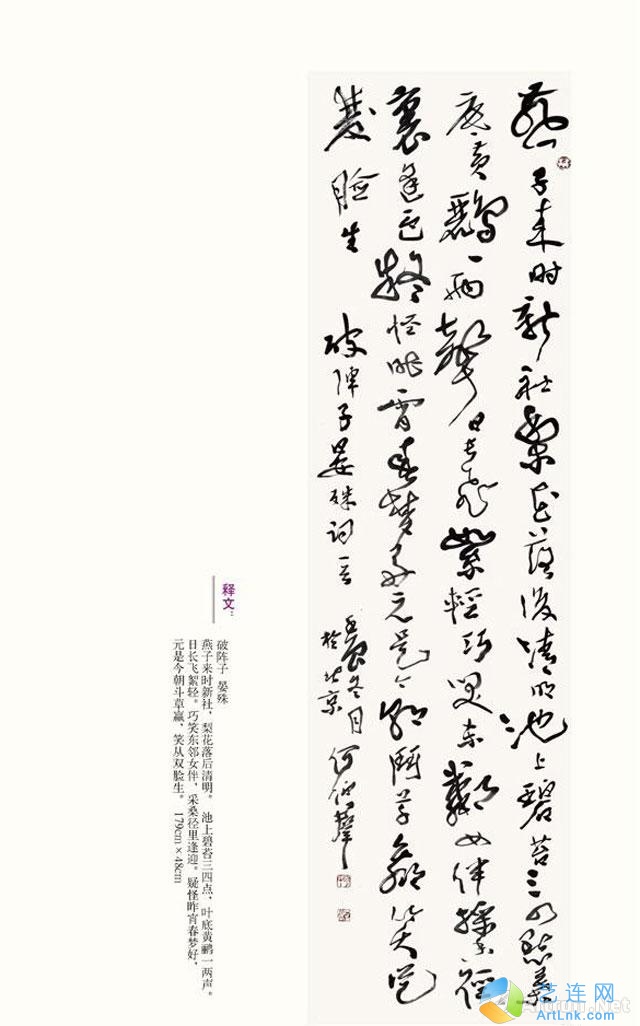 燕子来时新社梨花落後清明池上碧苔三四點葉
底黄鸝一兩聲日長飛絮輕巧笑東鄰女伴採桑徑
裏逢迎疑怪昨宵春夢好元是今朝鬪草贏笑從
雙臉生 破陣子晏殊詞一首
冬月
於北京
何
释文：
破阵子 晏殊
燕子来时新社，梨花落后清明。池上碧苔三四点，叶底黄鹂一两声。
日长飞絮轻。巧笑东邻女伴，采桑径里逢迎。疑怪昨宵春梦好，
元是今朝斗草赢，笑从双脸生。 179cm×48cm
艺连网
ArtLnk.com